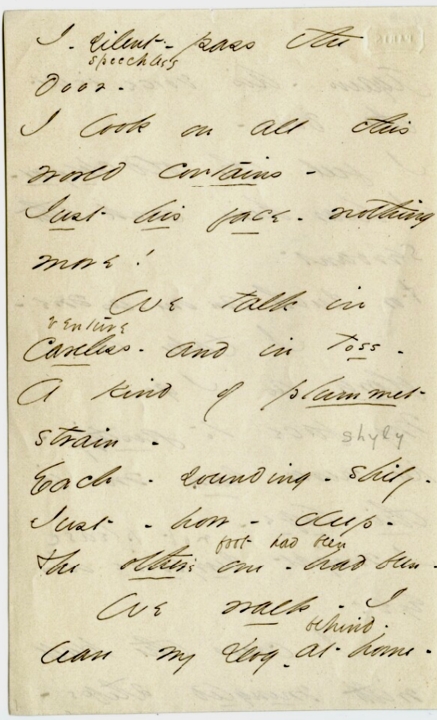 I - silent - pass the
speechless
Door -
I look on all this
world contains -
Just his face - nothing
more!
We talk in
venture
careless - and in toss -
A kind of plummet -
strain -
shyly
Each - sounding - shily -
Just - how - deep -
foot had been
The other's one - had been -
We walk - I
behind -
leave my Dog - at home -